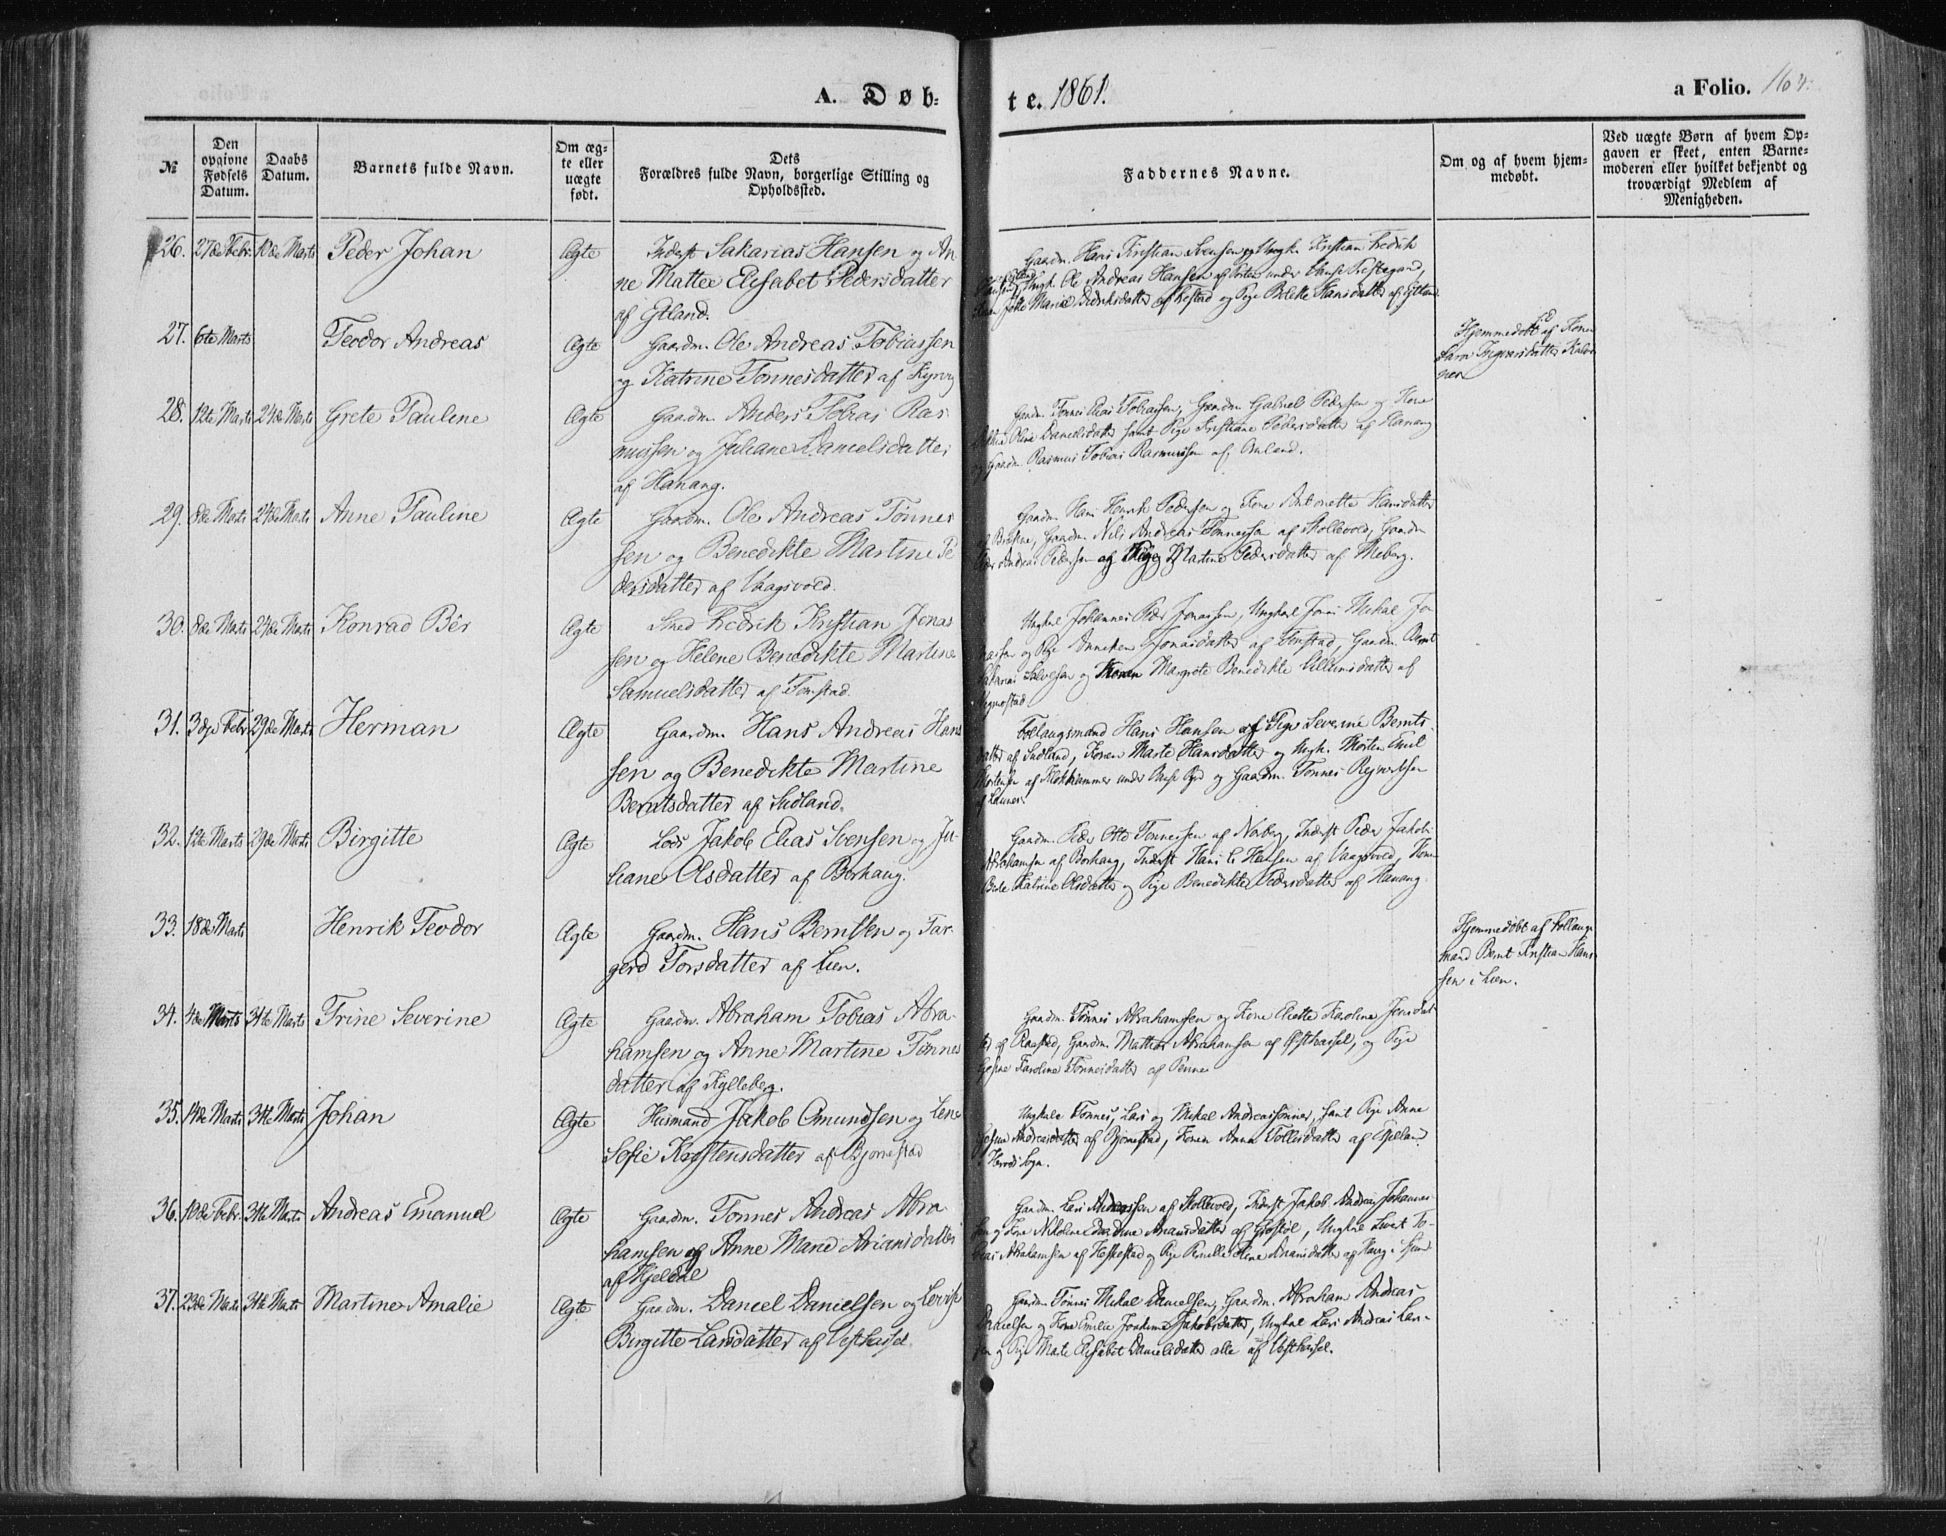 A. Døb-
te. 1861.
a Folio. 164.
№
Den opgivne Fødsels Datum.
Daabs Datum.
Barnets fulde Navn.
Om ægte eller uægte født.
Dets Forældres fulde Navn, borgerlige Stilling og Opholdssted.
Faddernes Navne.
Om og af hvem hjemmedøbt.
Ved uægte Børn af hvem Opgaven er skeet, enten Barnemoderen eller hvilket bekjendt og troværdigt Medlem af Menigheden.
26. 27de Febr. 10de Marts Peder Johan Ægte Inderst Sakarias Hansen og An-
ne Mattee Elisabet Pedersdatter
af Gtland.
Gaardm. Hans Kristian Svensen og Ungk. Kristian Fedrik
Hansen, Ungk. Ole Andreas Hansen af under Lunde Præstegaard,
Marie Didriksdatter af og Pige Bolette Hansdatter af
27. 6te Marts Teodor Andreas Ægte Gaardm. Ole Andreas Tobiassen
og Katrine Tønnesdatter af
Hjemmedøbt af Kone
Sara Ingvarsdatter
28. 12te Marts 24de Marts Grete Pauline Ægte Gaardm. Anders Tobias Ras-
mussen og Juliane Danielsdatter
af Hanang.
Gaardm. Tønnes Elias Tobiassen, Gaardm. Gabriel Pedersen og Kone
Oline Danielsdatter samt Pige Kristiane Pedersdatter af Hanang
og Gaardm. Rasmus Tobias Rasmussen af Omland.
29. 8de Marts 24de Marts Anne Pauline Ægte Gaardm. Ole Andreas Tønnes-
sen og Benedikte Martine Pe-
dersdatter af Vaagsvold.
Gaardm. Hans Henrik Pedersen og Kone Antonette Hansdatter
af Brekne, Gaardm. Nils Andreas Tønnessen af Skollevold, Gaardm.
Peder Andreas Pedersen og Pige Martine Pedersdatter af Meberg.
30. 8de Marts 24de Marts Konrad Bêr Ægte Smed Fedrik Kristian Jonas-
sen og Helene Benedikte Martine
Samuelsdatter af Tomstad.
Ungkal Johannes Peder Jonassen, Ungkal Jonas Mikal Jo-
nassen og Pige Anneken Jonasdatter af Tomstad, Gaardm. Bernt
Salvesen og Konen Margrete Benedikte Villumsdatter af
31. 3dje Febr. 29de Marts Herman Ægte Gaardm. Hans Andreas Han-
sen og Benedikte Martine
Berntsdatter af Sudland.
Follaugsmand Hans Hansen af Pige Severine Bernts-
datter af Sudland, Konen Marte Hansdatter og Ungk. Morten Emil
Mortensen af Klokhammer under og Gaardm. Tønnes Reinertsen
32. 12te Marts 29de Marts Birgitte Ægte Lods Jakob Elias Svensen og Ju-
liane Olsdatter af Borhaug.
Gaardm. Peder Otto Tønnessen af Norberg, Inderst Peder Jakob
Abrahamsen af Borhaug, Inderst Hans C. Hansen af Vaagsvold, Kone
Berte Katrine Olsdatter og Pige Benedikte Pedersdatter af Hanang.
33. 18de Marts Henrik Teodor Ægte Gaardm. Hans Berntsen og Tar-
gerd Torsdatter af Lien.
Hjemmedøbt af Follaugs-
mand Bernt Kristian Han-
sen i Lien.
34. 4de Marts 31te Marts Trine Severine Ægte Gaardm. Abraham Tobias Abra-
hamsen og Anne Martine Tønnes-
datter af Kylleberg.
Gaardm. Tønnes Abrahamsen og Kone Eliette Karoline Jensdat-
ter af Raastad, Gaardm. Mathias Abrahamsen af Østhassel, og Pige
Gesine Karoline Tønnesdatter af Penne
35. 14de Marts 31te Marts Johan Ægte Husmand Jakob Omundsen og Lene
Sofie Kristensdatter af Bjørnestad
Ungkale Tønnes, Lars og Mikal Andreassønner, samt Pige Anne
Gesine Andreasdatter af Bjørnestad, Konen Anne Tollisdatter af
Herreds Sogn.
36. 10de Febr. 31te Marts Andreas Emanuel Ægte Gaardm. Tønnes Andreas Abra-
hamsen og Anne Marie Ariansdatter
af Hjeldal
Gaardm. Lars Andreassen af Skollevold, Inderst Jakob Andreas Johannes-
sen og Kone Nikoline Ariansdatter af Ungkal Sivert To-
bias Abrahamsen af Heskestad og Pige Pernille Lene Ariansdatter af Haug i
37. 23de Marts 31te Marts Martine Amalie Ægte Gaardm. Daniel Danielsen og Lovise
Birgitte Larsdatter af Vesthassel.
Gaardm. Tønnes Mikal Danielsen, Gaardm. Abraham Andreas
Danielsen og Kone Emilie Jondine Jakobsdatter, Ungkal Lars Andreas Lar-
sen og Pige Marte Elisabet Danielsdatter alle af Vesthassel.